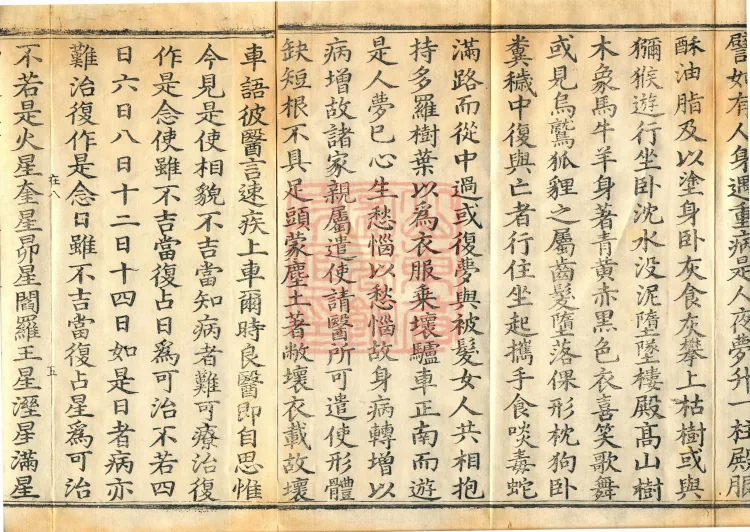 譬如有人身遇重病是人夜夢升一柱殿服
酥油脂及以塗身臥灰食灰攀上枯樹或與
獼猴遊行坐臥沈水没泥墮墜樓殿髙山樹
木象馬牛羊身著青黄赤黒色衣喜笑歌舞
或見烏鷲狐貍之屬齒髮墮落倮形枕狗臥
糞穢中復與亡者行住坐起攜手食啖毒蛇
滿路而從中過或復夢與被髮女人共相抱
持多羅樹葉以爲衣服乘壞驢車正南而遊
是人夢已心生愁惱以愁惱故身病轉增以
病增故諸家親屬遣使請醫所可遣使形體
缺短根不具足頭蒙塵土著敝壞衣載故壞
車語彼醫言速疾上車爾時良醫即自思惟
今見是使相貌不吉當知病者難可療治復
作是念使雖不吉當復占日爲可治不若四
日六日八日十二日十四日如是日者病亦
難治復作是念日雖不吉當復占星爲可治
在八
五
不若是火星奎星昴星閻羅王星溼星滿星